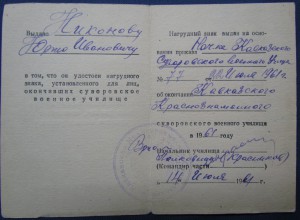 Выдано Никонову
Юрию Ивановичу
в том, что он удостоен нагрудного
знака, установленного для лиц,
окончивших суворовское
военное училище
Нагрудный знак выдан на осно-
вании приказа Нач-ка Кавказского
Суворовского военного
№ 77 от июля 1961 г.
об окончании Кавказского
Краснознаменного
суворовского военного училища
в 1961 году
Начальник училища
Полковник (Красненко)
(Командир части)
14 июля 1961 г.